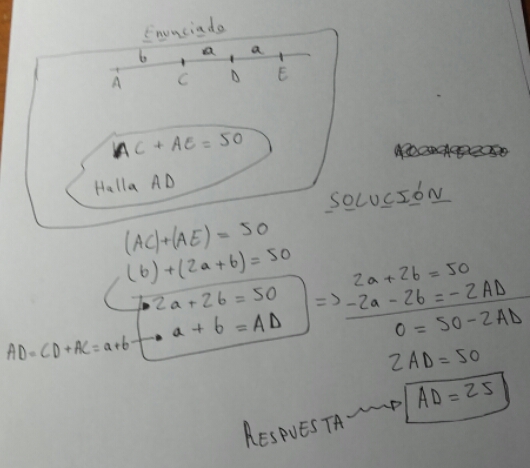 Enunciado
b a a
A C D E
AC + AE = 50
Halla AD
SOLUCIÓN
(AC)+(AE) = 50
(b)+(2a+b)=50
2a+2b=50
a+b=AD
AD=CD+AC=a+b
=> 2a+2b=50
-2a-2b=-2AD
0=50-2AD
2AD=50
AD=25
RESPUESTA